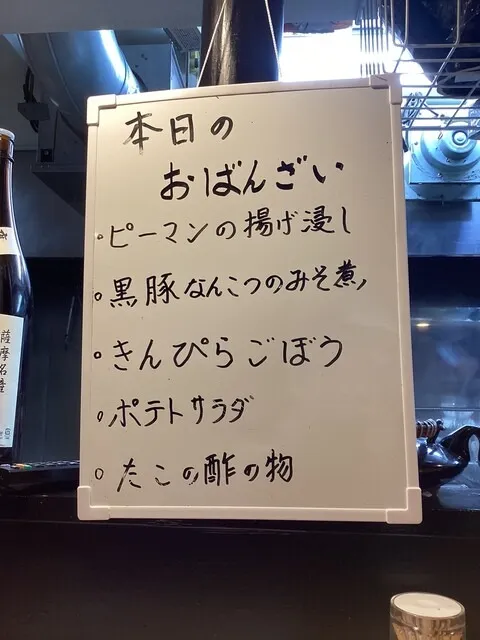 本日の
おばんざい
◦ピーマンの揚げ浸し
◦黒豚なんこつのみそ煮
◦きんぴらごぼう
◦ポテトサラダ
◦たこの酢の物
薩摩名産